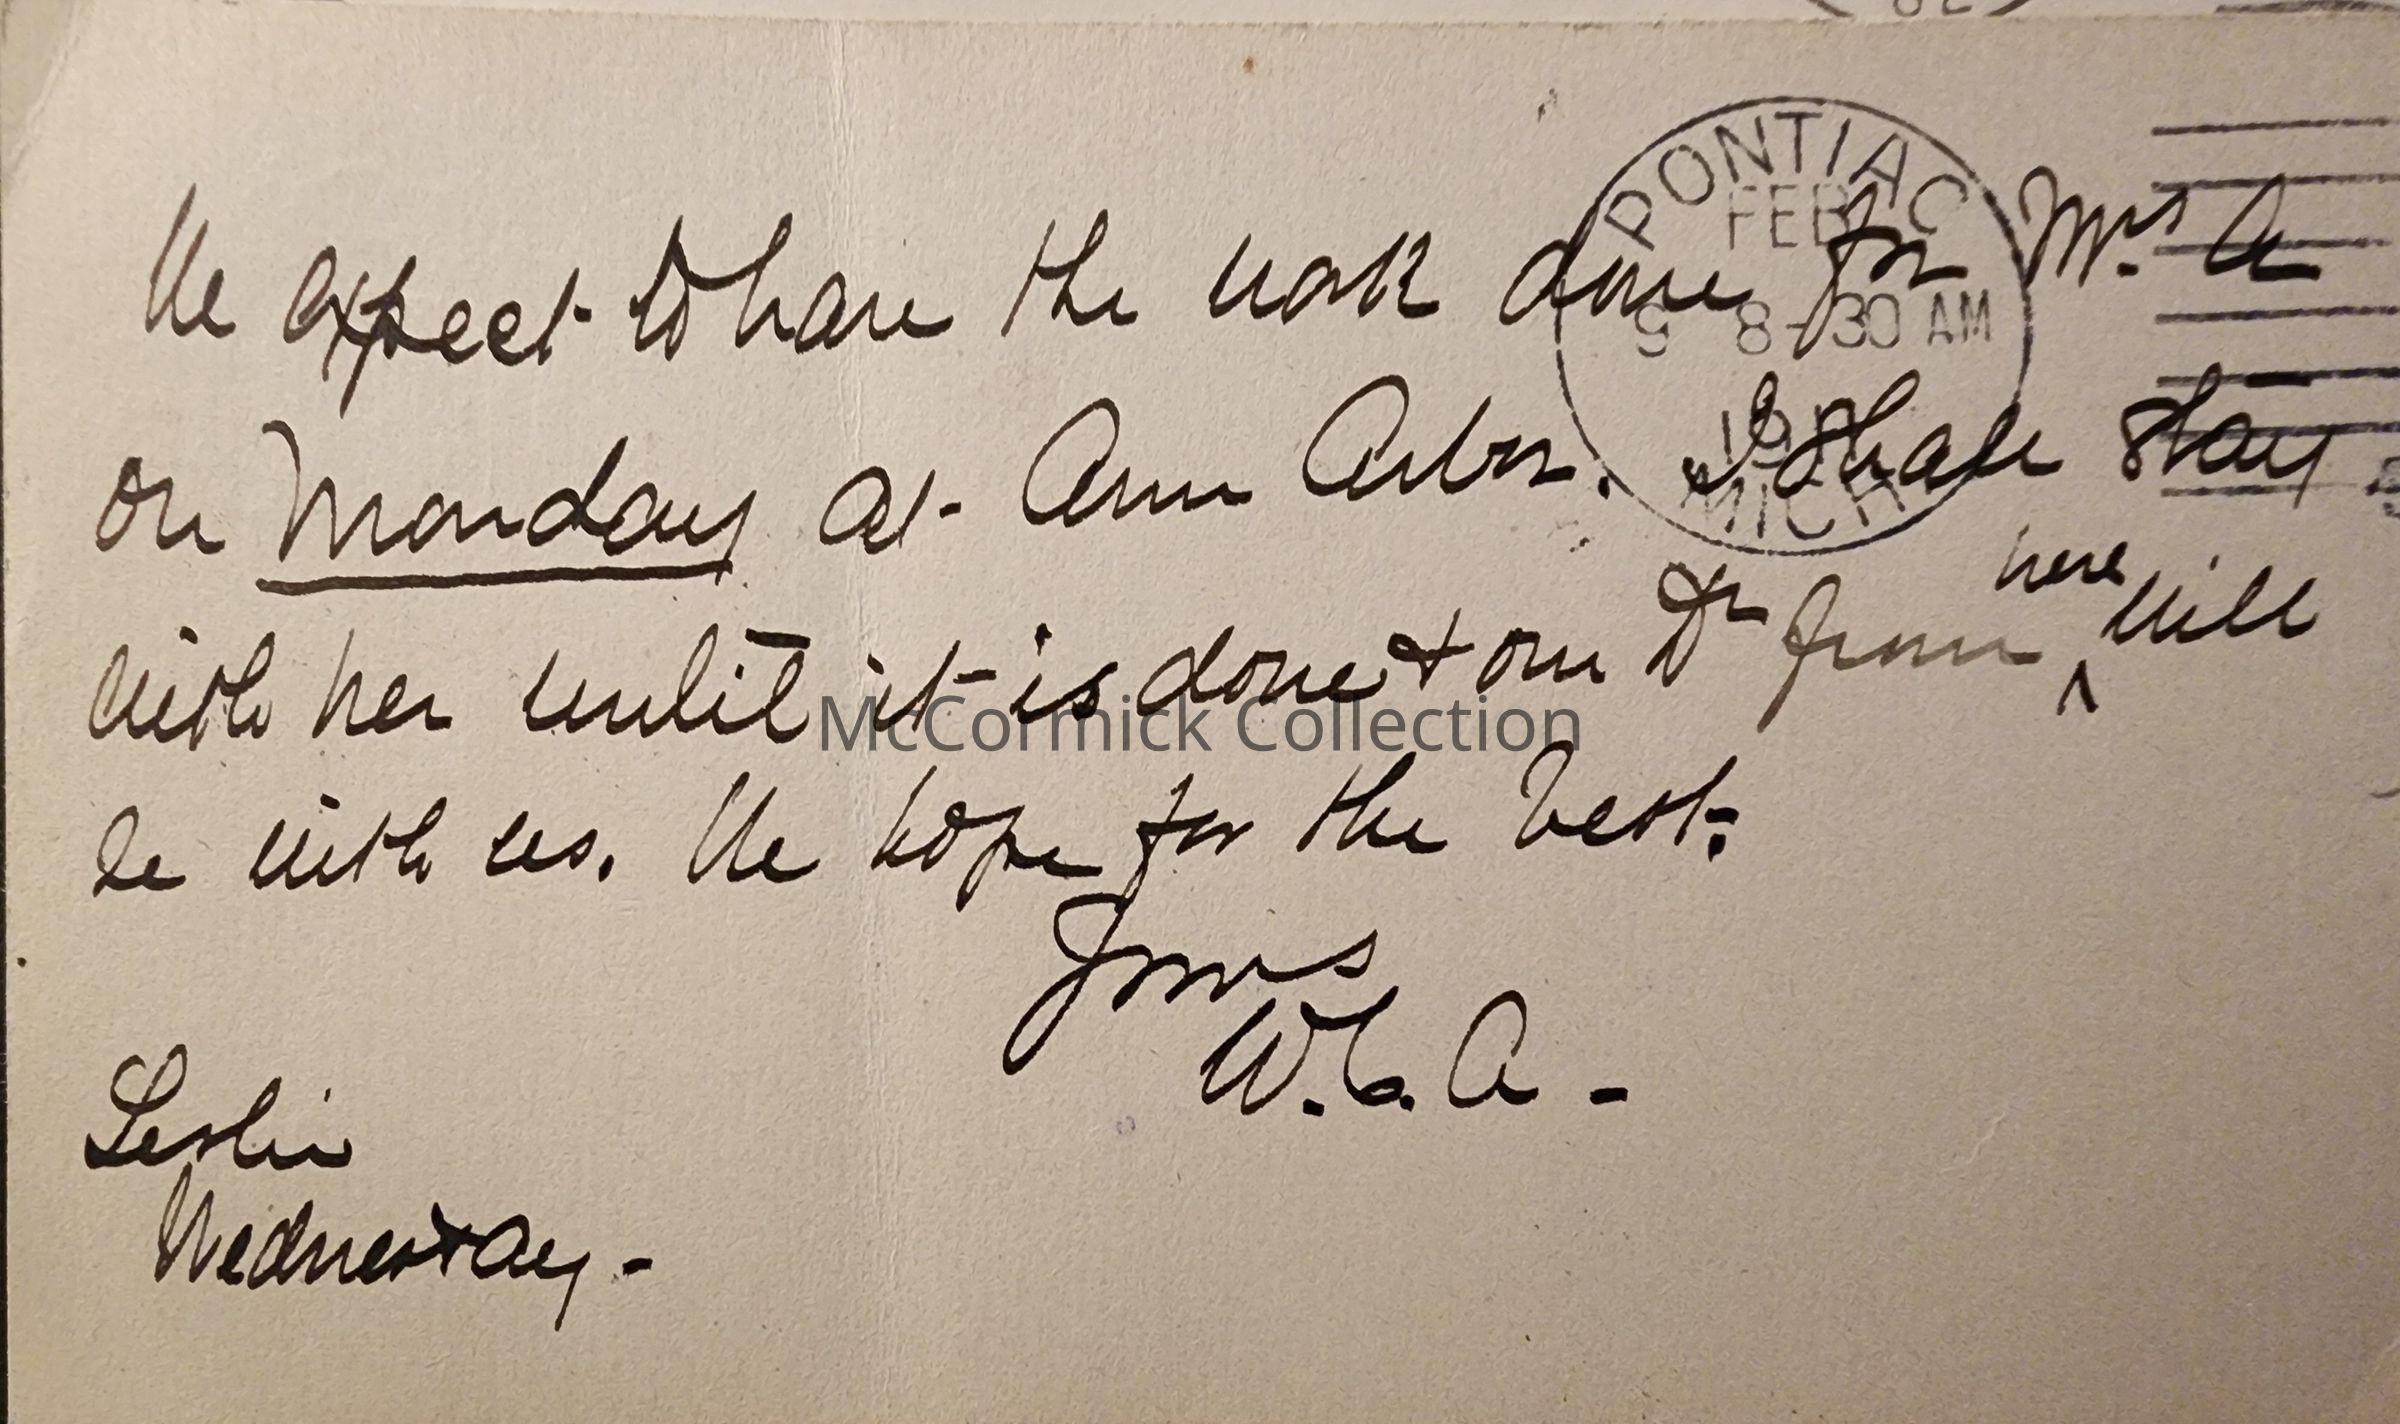 PONTIAC
FEB
9 8-30 AM
MICH
We expect to have the work done for Mrs. A
on Monday at Ann Arbor. I shall stay
with her until it is done & our Dr from here will
be with us. We hope for the best.
Yours
W. C. A -
Leslie
Wednesday -
McCormick Collection